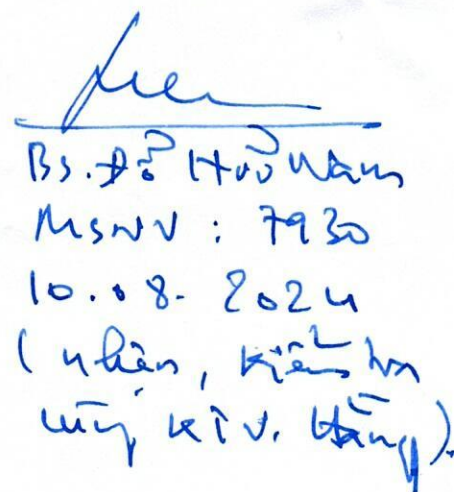 Bs. Đỗ Hữu Nam
MSNV : 7930
10.08.2024
(nhận, kiểm tra
cùng KTV. Hằng).